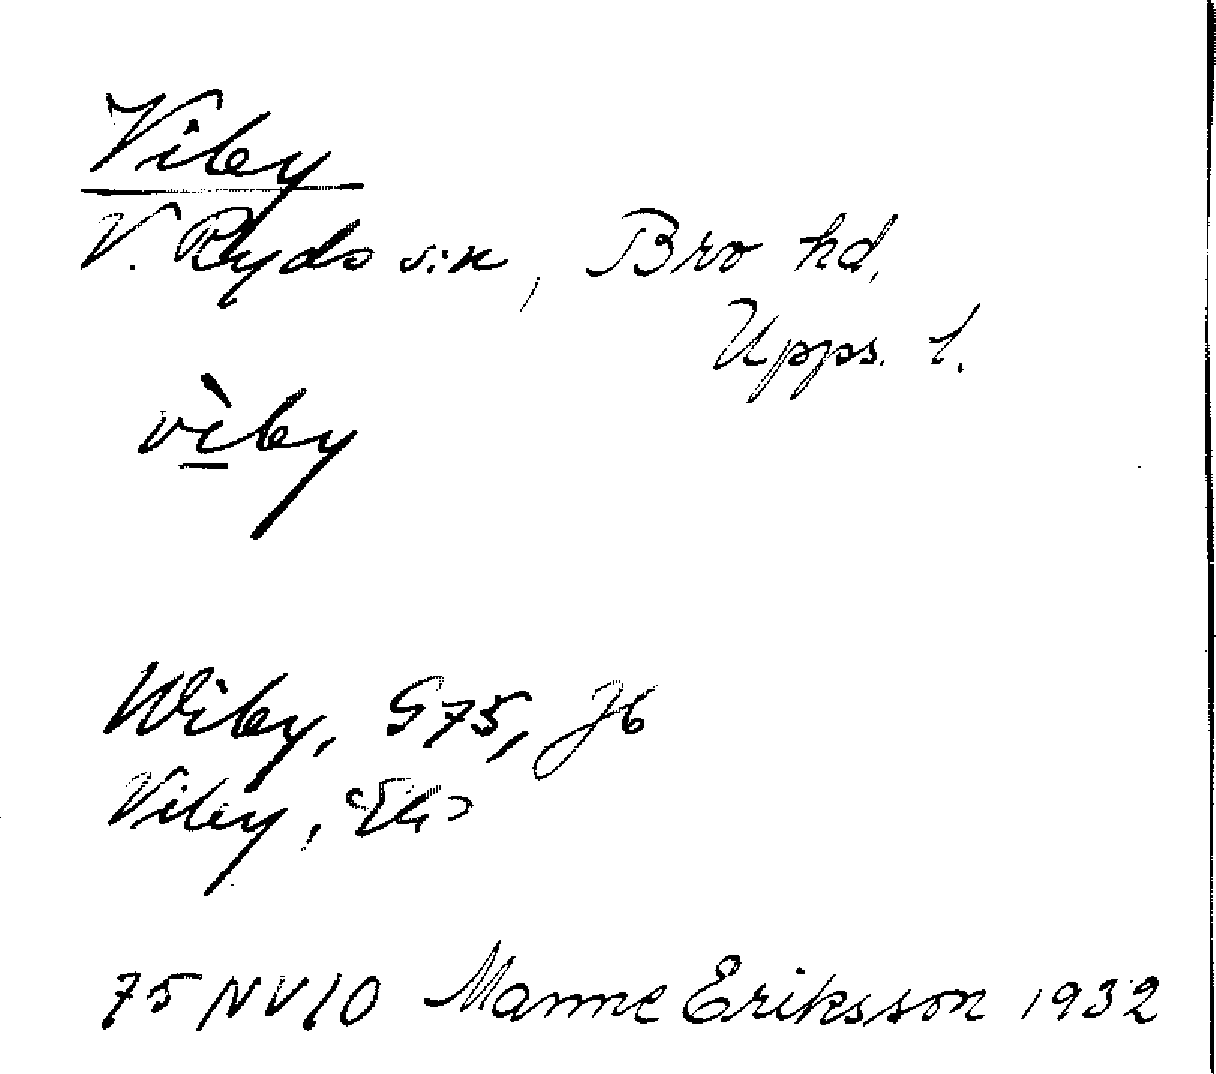 Viby
V. Ryds s:n, Bro hd,
Upps. l.
vìby
Wiby, G75, Jb
Viby,
75 NV10 Manne Eriksson 1932